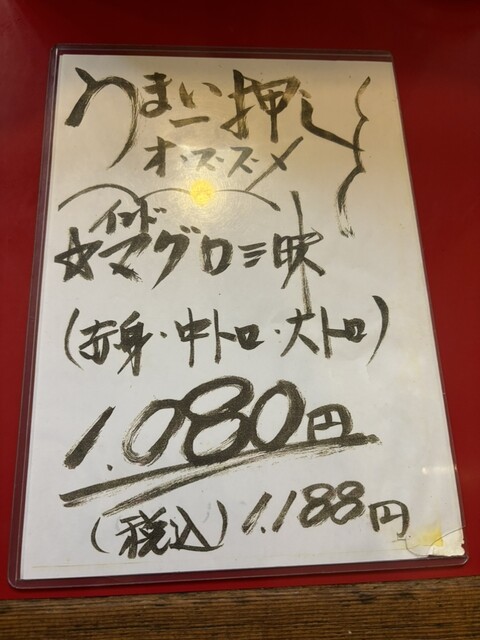 うまい一押し
オススメ
インド
☆マグロ三昧
(赤身・中トロ・大トロ)
1.080円
(税込) 1.188円